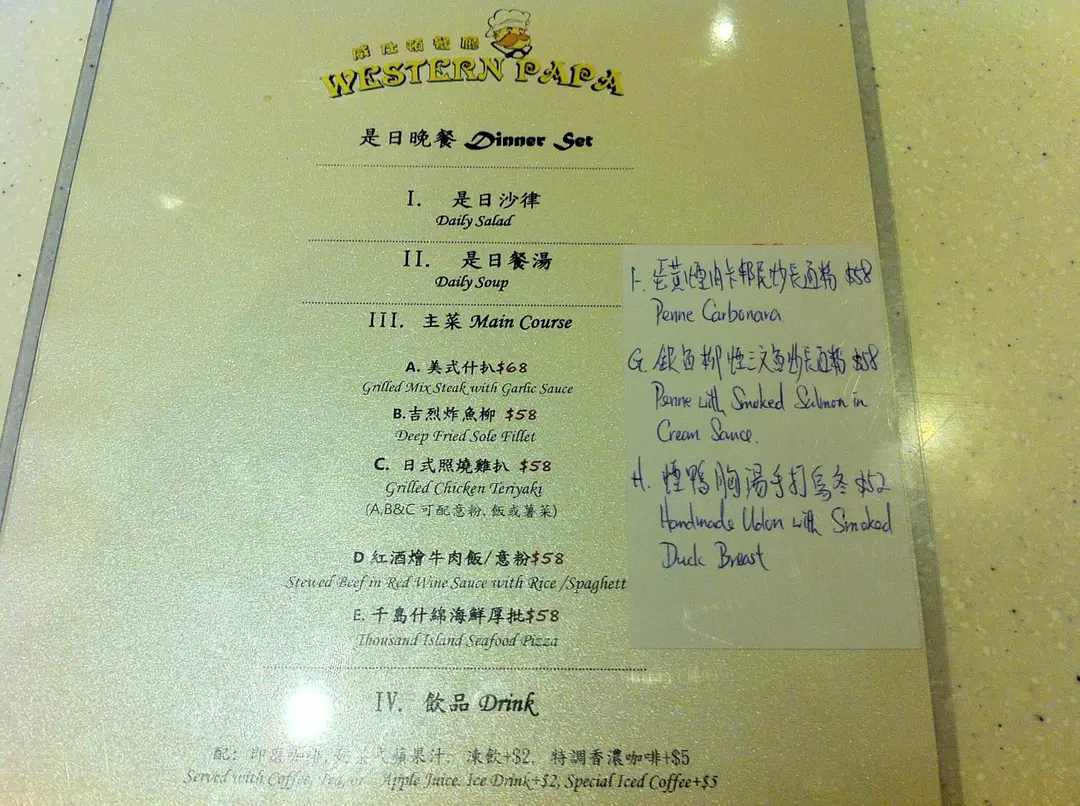 威仕頓餐廳
WESTERN PAPA
是日晚餐 Dinner Set
I. 是日沙律
Daily Salad
II. 是日餐湯
Daily Soup
III. 主菜 Main Course
A. 美式什扒$68
Grilled Mix Steak with Garlic Sauce
B.吉烈炸魚柳 $58
Deep Fried Sole Fillet
C. 日式照燒雞扒 $58
Grilled Chicken Teriyaki
(A,B&C 可配意粉、飯或薯菜)
D 紅酒燴牛肉飯/意粉$58
Stewed Beef in Red Wine Sauce with Rice /Spaghett
E. 千島什錦海鮮厚批$58
Thousand Island Seafood Pizza
IV. 飲品 Drink
配: 即磨咖啡, 蘋果汁. 凍飲+$2, 特調香濃咖啡+$5
Served with Coffee, Tea, or Apple Juice. Ice Drink+$2, Special Iced Coffee+$5
F. 蛋黃煙肉卡邦尼炒長通粉 $58
Penne Carbonara
G. 銀魚柳煙三文魚炒長通粉 $58
Penne with Smoked Salmon in
Cream Sauce.
H. 煙鴨胸湯手打烏冬 $52
Handmade Udon with Smoked
Duck Breast